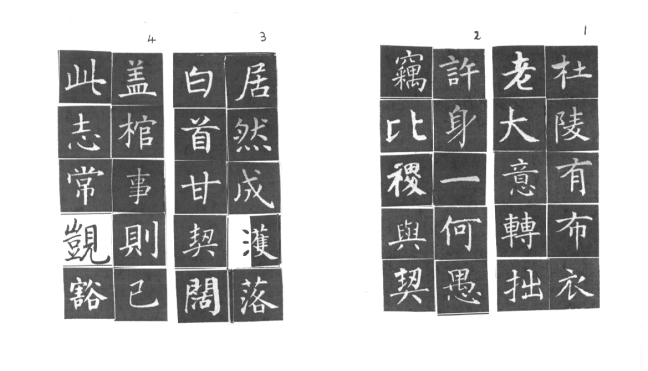 1
杜陵有布衣
老大意轉拙
2
許身一何愚
竊比禝與契
3
居然成濩落
白首甘契闊
4
盖棺事則已
此志常覬豁